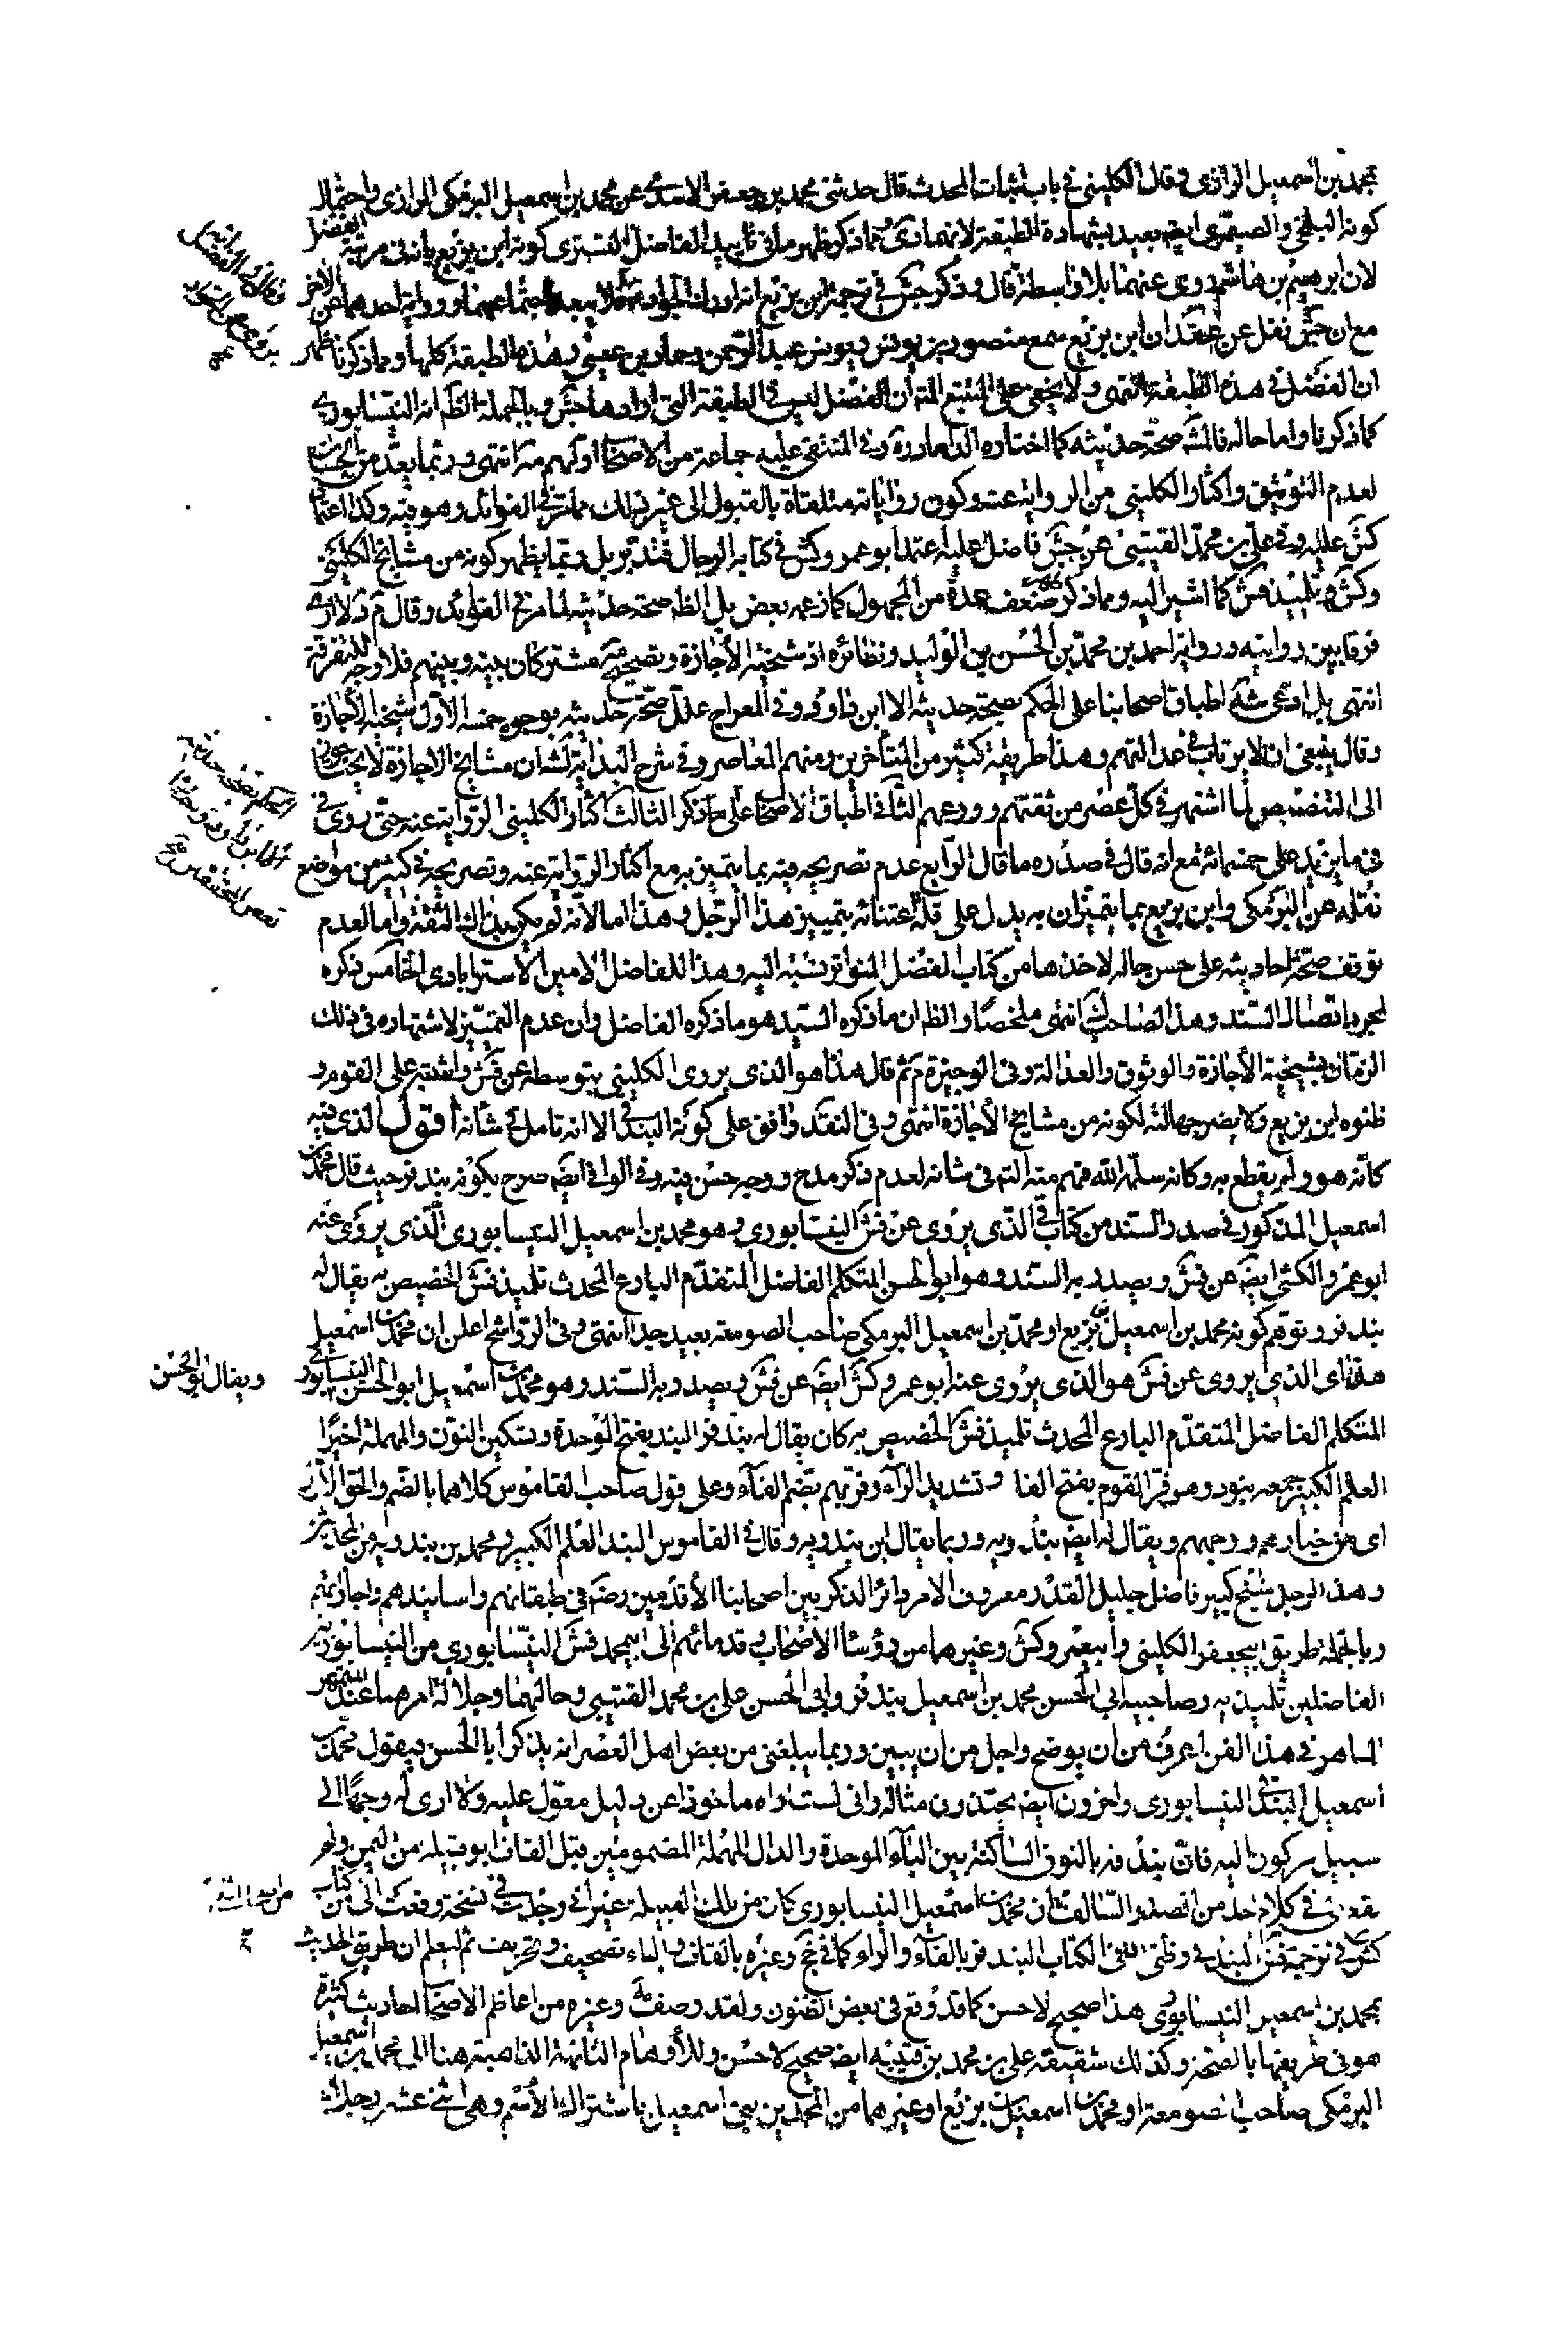 بمحمد بن اسمعيل الرازى وقال الكلينى فى باب اثبات المحدث قال حدثنى محمد بن جعفر الاسدى عن محمد بن اسمعيل البرمكى الرازى واحتمال
كونه البلخى والصيمرى ايضا بعيد بشهادة الطبقة لانهما ومما ذكر ظهر ما فى تاييد الفاضل التسترى كونه ابن بزيع بانه فى مرتبة الفضل
لان ابرهيم بن هاشم روى عنهما بلا واسطة قال وذكر جش فى ترجمة ابن بزيع انه ادرك الجواد ع فلا يبعد اجتماعهما ورواية احدهما عن الاخر
مع ان جش نقل عن عقد ان ابن بزيع سمع منصور بن يونس ويونس عبد الرحمن وحماد بن عيسى وهذه الطبقة كلها ومما ذكرنا ظهر
ان الفضل فى هذه الطبقة انتهى ولا يخفى على المتتبع ان الفضل ليس فى الطبقة التى ارادها جش وبالجملة الظ انه النيسابورى
كما ذكرنا واما حاله فالمشه صحة حديثه كما اختاره الداماد ره وفى المنتقى عليه جماعة من الاصحاب اولهم مه انتهى وربما يعد من الحسان
لعدم التوثيق واكثار الكلينى من الرواية عنه وكون رواياته متلقاة بالقبول الى غير ذلك مما مر فى الفوائد وهو فيه وكذا اعتماد
كش عليه وفى على بن محمد القتيبى عن جش فاضل عليه اعتمد ابو عمرو كش فى كتابه الرجال فتدبر بل ربما يظهر كونه من مشايخ الكلينى
وكش وتلميذ فش كما اشير اليه ومما ذكر ضعف عده من المجهول كما زعمه بعض بل الظ صحة حديثه لما مر فى الفوائد وقال م د لا ارى
فرقا بين روايته ورواية احمد بن محمد بن الحسن بن الوليد ونظائره اذ شيخية الاجازة وتصحيح مشترك كان بينه وبينهم فلا وجه للتفرقة
انتهى بل ادعى شه اطباق اصحابنا على الحكم بصحة حديثه الا ابن داود وفى المعراج علل صحة حديثه بوجوه خمسة الاول شيخية الاجازة
وقال ينبغى ان لا يرتاب فى عدالتهم وهذا طريقة كثير من المتأخرين ومنهم المعاصر وفى شرح البداية لشه ان مشايخ الاجازة لا يحتاجون
الى التنصيص لما اشتهر فى كل عصر من ثقتهم وورعهم الثانى اطباق الاصحاب على ما ذكر الثالث اكثار الكلينى الرواية عنه حتى روى فى
فى ما يزيد على خمسمائة مع انه قال فى صدره ما قال الرابع عدم تصريحه فيه بما يتميز به مع اكثار الرواية عنه وتصريحه فى كثير من مواضع
نقله عن البرمكى وابن بزيع بما يتميزان به يدل على قلة اعتنائه بتمييز هذا الرجل وهذا اما لانه لم يكن بذلك الثقة واما لعدم
توقف صحة احاديثه على حسن حاله لاخذها من كتاب الفضل المتواتر نسبته اليه وهذا للفاضل الامين الاسترابادى الخامس ذكره
لمجرد اتصال السند وهذا لصاحب انتهى ملخصا والظ ان ما ذكره السيد هو ما ذكره الفاضل وان عدم التميز لاشتهاره فى ذلك
الزمان بشيخية الاجازة والوثوق والعدالة وفى الوجيزة م ثم قال هذا هو الذى يروى الكلينى بتوسطه عن فش واشتبه على القوم و
ظنوه ابن بزيع ولا يضر جهالته لكونه من مشايخ الاجازة انتهى وفى النقد وافق على كونه البندقى الا انه تامل فى شأنه اقول الذى فيه
كانه هو ولم يقطع به وكانه سلمه الله فهم منه فى شانه لعدم ذكر مدح ووجه حسن فيه وفى الوافى ايضا صرح بكونه بندفر حيث قال محمد بن
اسمعيل المذكور فى صدر السند من كتاب فى الذى يروى عن فش النيسابورى وهو محمد بن اسمعيل النيسابورى الذى يروى عنه
ابو عمرو الكشى ايضا عن فش ويصدر به السند وهو ابو الحسن المتكلم الفاضل المتقدم البارع المحدث تلميذ فش الخصيص به يقال له
بندفر وتوهم كونه محمد بن اسمعيل بن بزيع او محمد بن اسمعيل البرمكى صاحب الصومعة بعيد جدا انتهى وفى الرواشح اعلن ان محمد بن اسمعيل
هذا اى الذى يروى عن فش هو الذى يروى عنه ابو عمرو كش ايضا عن فش ويصدر به السند وهو محمد بن اسمعيل ابو الحسن النيسابورى
ويقال ابو الحسن
المتكلم الفاضل المتقدم البارع المحدث تلميذ فش الخصيص به كان يقال له بندفر البند بفتح الموحدة وتسكين النون والمهملة اخيرا
العلم الكبير جمعه بنود وهو فر القوم بفتح الفا وتشديد الرآء وفرتهم بضم الفآء وعلى قول صاحب القاموس كلاهما بالضم والحق الاول
اى من خيارهم ووجههم ويقال له ايضا بندويه وربما يقال ابن بندويه وقال فى القاموس البند العلم الكبير ومحمد بن بندويه من المحدثين
وهذا الرجل شيخ كبير فاضل جليل القدر معروف الامر دائر الذكر بين اصحابنا الاقدمين رضه فى طبقاتهم واسانيدهم واجازاتهم
وبالجملة طريق ابيجعفر الكلينى وابيعمرو كش وغيرهما من رؤساء الاصحاب وقدمائهم الى ابيمحمد فش النيسابورى من النيسابوريين
الفاضلين تلميذيه وصاحبيه ابى الحسن محمد بن اسمعيل بندفر وابى الحسن على بن محمد القتيبى وحالهما وجلالة امرهما عند المتمهر
الماهر فى هذا الفن اعرف من ان يوضح واجل من ان يبين وربما يبلغنى من بعض اهل العصر انه يذكر ابا الحسن فيقول محمد بن
اسمعيل البندقى النيسابورى واخرون ايضا يحتذون مثاله وانى لست اراه ماخوذا عن دليل معول عليه ولا ارى له وجها الى
سبيل مركون اليه فان بندفه بالنون الساكنة بين البآء الموحدة والدال المهملة المضمومتين قبل القاف ابو قبيلة من اليمن ولم
يقع الى فى كلام احد من الصدر السالف ان محمد بن اسمعيل النيسابورى كان من تلك القبيلة غير انى وجدت فى نسخة وقعت الى من كتاب
كش فى ترجمة فش البندقى وظنى ان فى الكتاب البندفر بالفآء والراء كما فى جخ وغيره بالقاف والياء تصحيف وتحريف ثم ليعلم ان طريق الحديث
بمحمد بن اسمعيل النيسابورى هذا صحيح لا حسن كما قد وقع فى بعض الظنون ولقد وصف مه وغيره من اعاظم الاصحاب احاديث كثيرة
هو فى طريقها بالصحة وكذلك شقيقه على بن محمد بن قتيبه ايضا صحيح لا حسن وللأوهام التائهة الذاهبة هنا الى محمد بن اسمعيل
البرمكى صاحب الصومعة او محمد بن اسمعيل بن بزيع او غيرهما من المحمدين بنى اسمعيل باشتراك الاسم وهى اثنى عشر رجلا